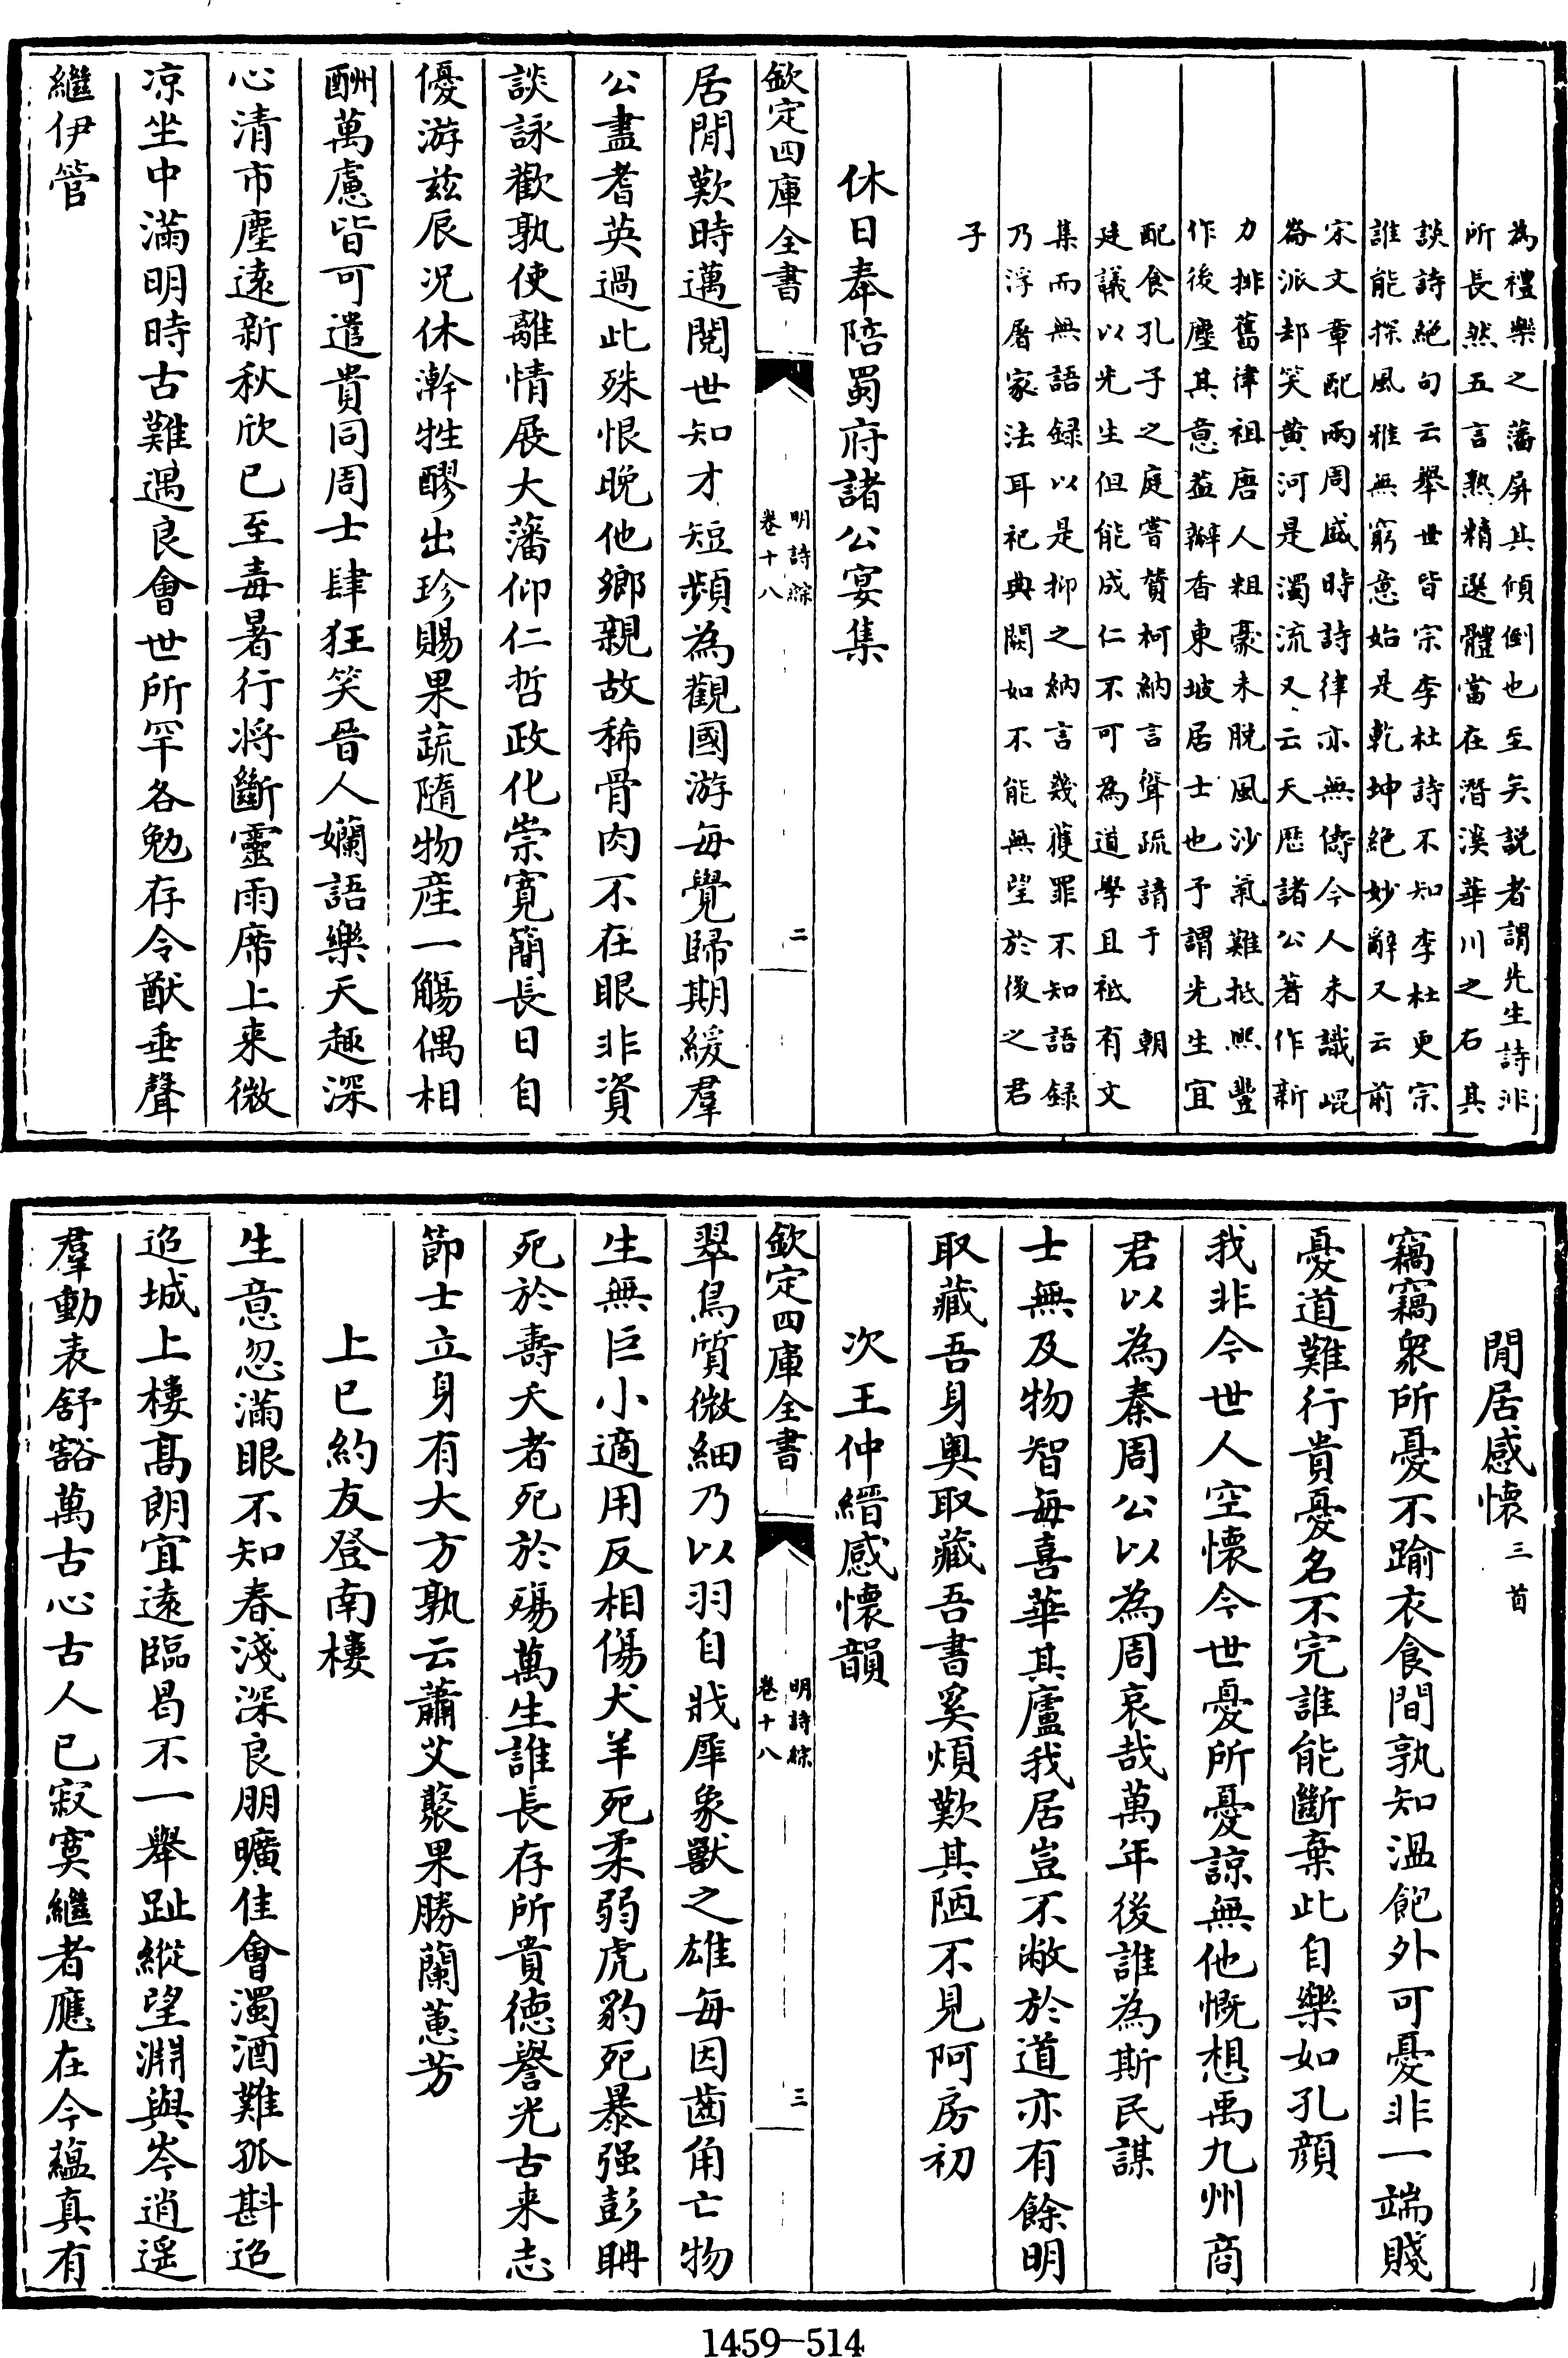 為禮樂之藩屏其傾倒也至矣説者謂先生詩非
所長然五言熟精選體當在潛溪華川之右其
談詩絕句云舉世皆宗李杜詩不知李杜更宗
誰能探風雅無窮意始是乾坤絕妙辭又云前
宋文章配兩周盛時詩律亦無儔今人未識崐
崙派却笑黄河是濁流又云天厯諸公著作新
力排舊律祖唐人粗豪未脱風沙氣難抵熈豐
作後塵其意葢瓣香東坡居士也予謂先生宜
配食孔子之庭嘗贊柯納言聳疏請于 朝
廷議以先生但能成仁不可為道學且祗有文
集而無語録以是抑之納言幾獲罪不知語録
乃浮屠家法耳祀典闕如不能無望於後之君
子
休日奉陪蜀府諸公宴集
欽定四庫全書 明詩綜 卷十八 二
居閒歎時邁閱世知才短頻為觀國游每覺歸期緩羣
公盡耆英過此殊恨晚他鄉親故稀骨肉不在眼非資
談詠歡孰使離情展大藩仰仁哲政化崇寛簡長日自
優游兹辰况休澣牲醪出珍賜果蔬隨物産一觴偶相
酬萬慮皆可遣貴同周士肆狂笑晉人嬾語樂天趣深
心清市塵遠新秋欣已至毒暑行将斷靈雨席上来微
凉坐中滿明時古難遇良會世所罕各勉存令猷垂聲
繼伊管
閒居感懷 三首
竊竊衆所憂不踰衣食間孰知溫飽外可憂非一端賤
憂道難行貴憂名不完誰能斷棄此自樂如孔顔
我非今世人空懷今世憂所憂諒無他慨想禹九州商
君以為秦周公以為周哀哉萬年後誰為斯民謀
士無及物智每喜華其廬我居豈不敝於道亦有餘明
取藏吾身奥取藏吾書奚煩歎其陋不見阿房初
次王仲縉感懷韻
欽定四庫全書 明詩綜 卷十八 三
翠鳥質微細乃以羽自戕犀象獸之雄每因齒角亡物
生無巨小適用反相傷犬羊死柔弱虎豹死暴强彭聃
死於壽夭者死於殤萬生誰長存所貴德譽光古来志
節士立身有大方孰云蕭艾藂果勝蘭蕙芳
上已約友登南樓
生意忽滿眼不知春淺深良朋曠佳會濁酒難孤斟迢
迢城上樓髙朗宜遠臨曷不一舉趾縱望淵與岑逍遥
羣動表舒豁萬古心古人已寂寞繼者應在今藴真有
1459—514